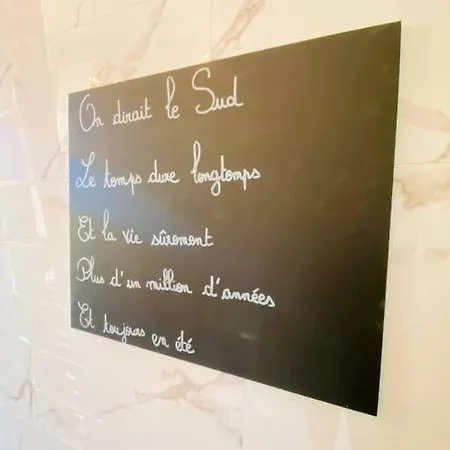 On dirait le Sud
Le temps dure longtemps
Et la vie sûrement
Plus d'un million d'années
Et toujours en été